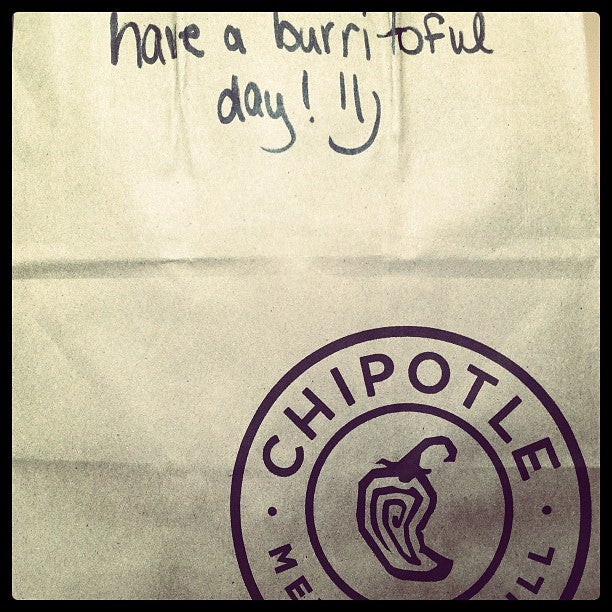 have a burritoful
day!
CHIPOTLE
ME
ILL